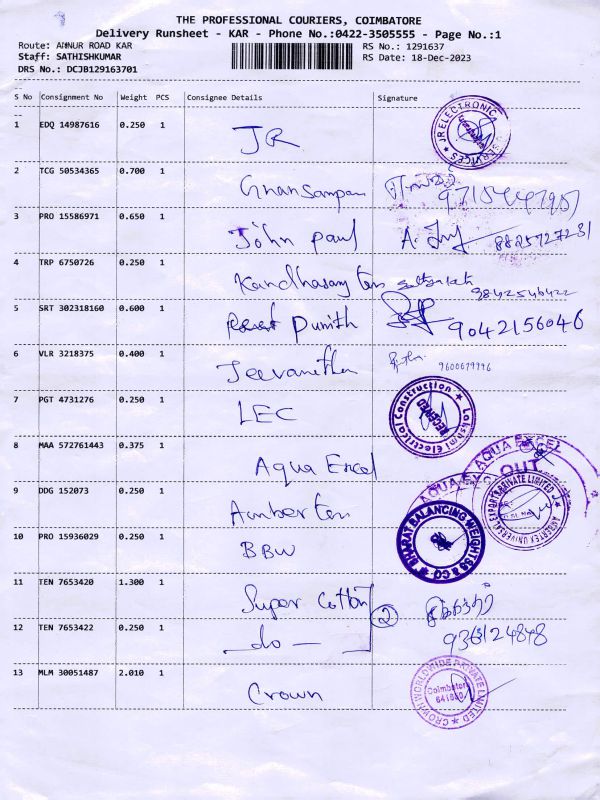 THE PROFESSIONAL COURIERS, COIMBATORE
Delivery Runsheet - KAR - Phone No.:0422-3505555 - Page No.:1
Route: ANNUR ROAD KAR RS No.: 1291637
Staff: SATHISHKUMAR RS Date: 18-Dec-2023
DRS No.: DCJB129163701
S No Consignment No Weight PCS Consignee Details Signature
1 EDQ 14987616 0.250 1 JR JR ELECTRONIC SERVICES
2 TCG 50534365 0.700 1 Gnansampan
3 PRO 15586971 0.650 1 John paul 8825727231
4 TRP 6750726 0.250 1 Kandhasamy tex 9842546422
5 SRT 302318160 0.600 1 Punith 9042156046
6 VLR 3218375 0.400 1 Jeevanitha 9600679996
7 PGT 4731276 0.250 1 LEC Lakshmi Electrical Construction RECEIVED
8 MAA 572761443 0.375 1 Aqua Excel AQUA EXCEL OUT
9 DDG 152073 0.250 1 Amber tex
10 PRO 15936029 0.250 1 BBW BHARAT BALANCING WEIGHTSS & CO
11 TEN 7653420 1.300 1 Super Cotton 2
12 TEN 7653422 0.250 1 — do — 936124848
13 MLM 30051487 2.010 1 Crown CROWN WORLDWIDE PRIVATE LIMITED Coimbatore